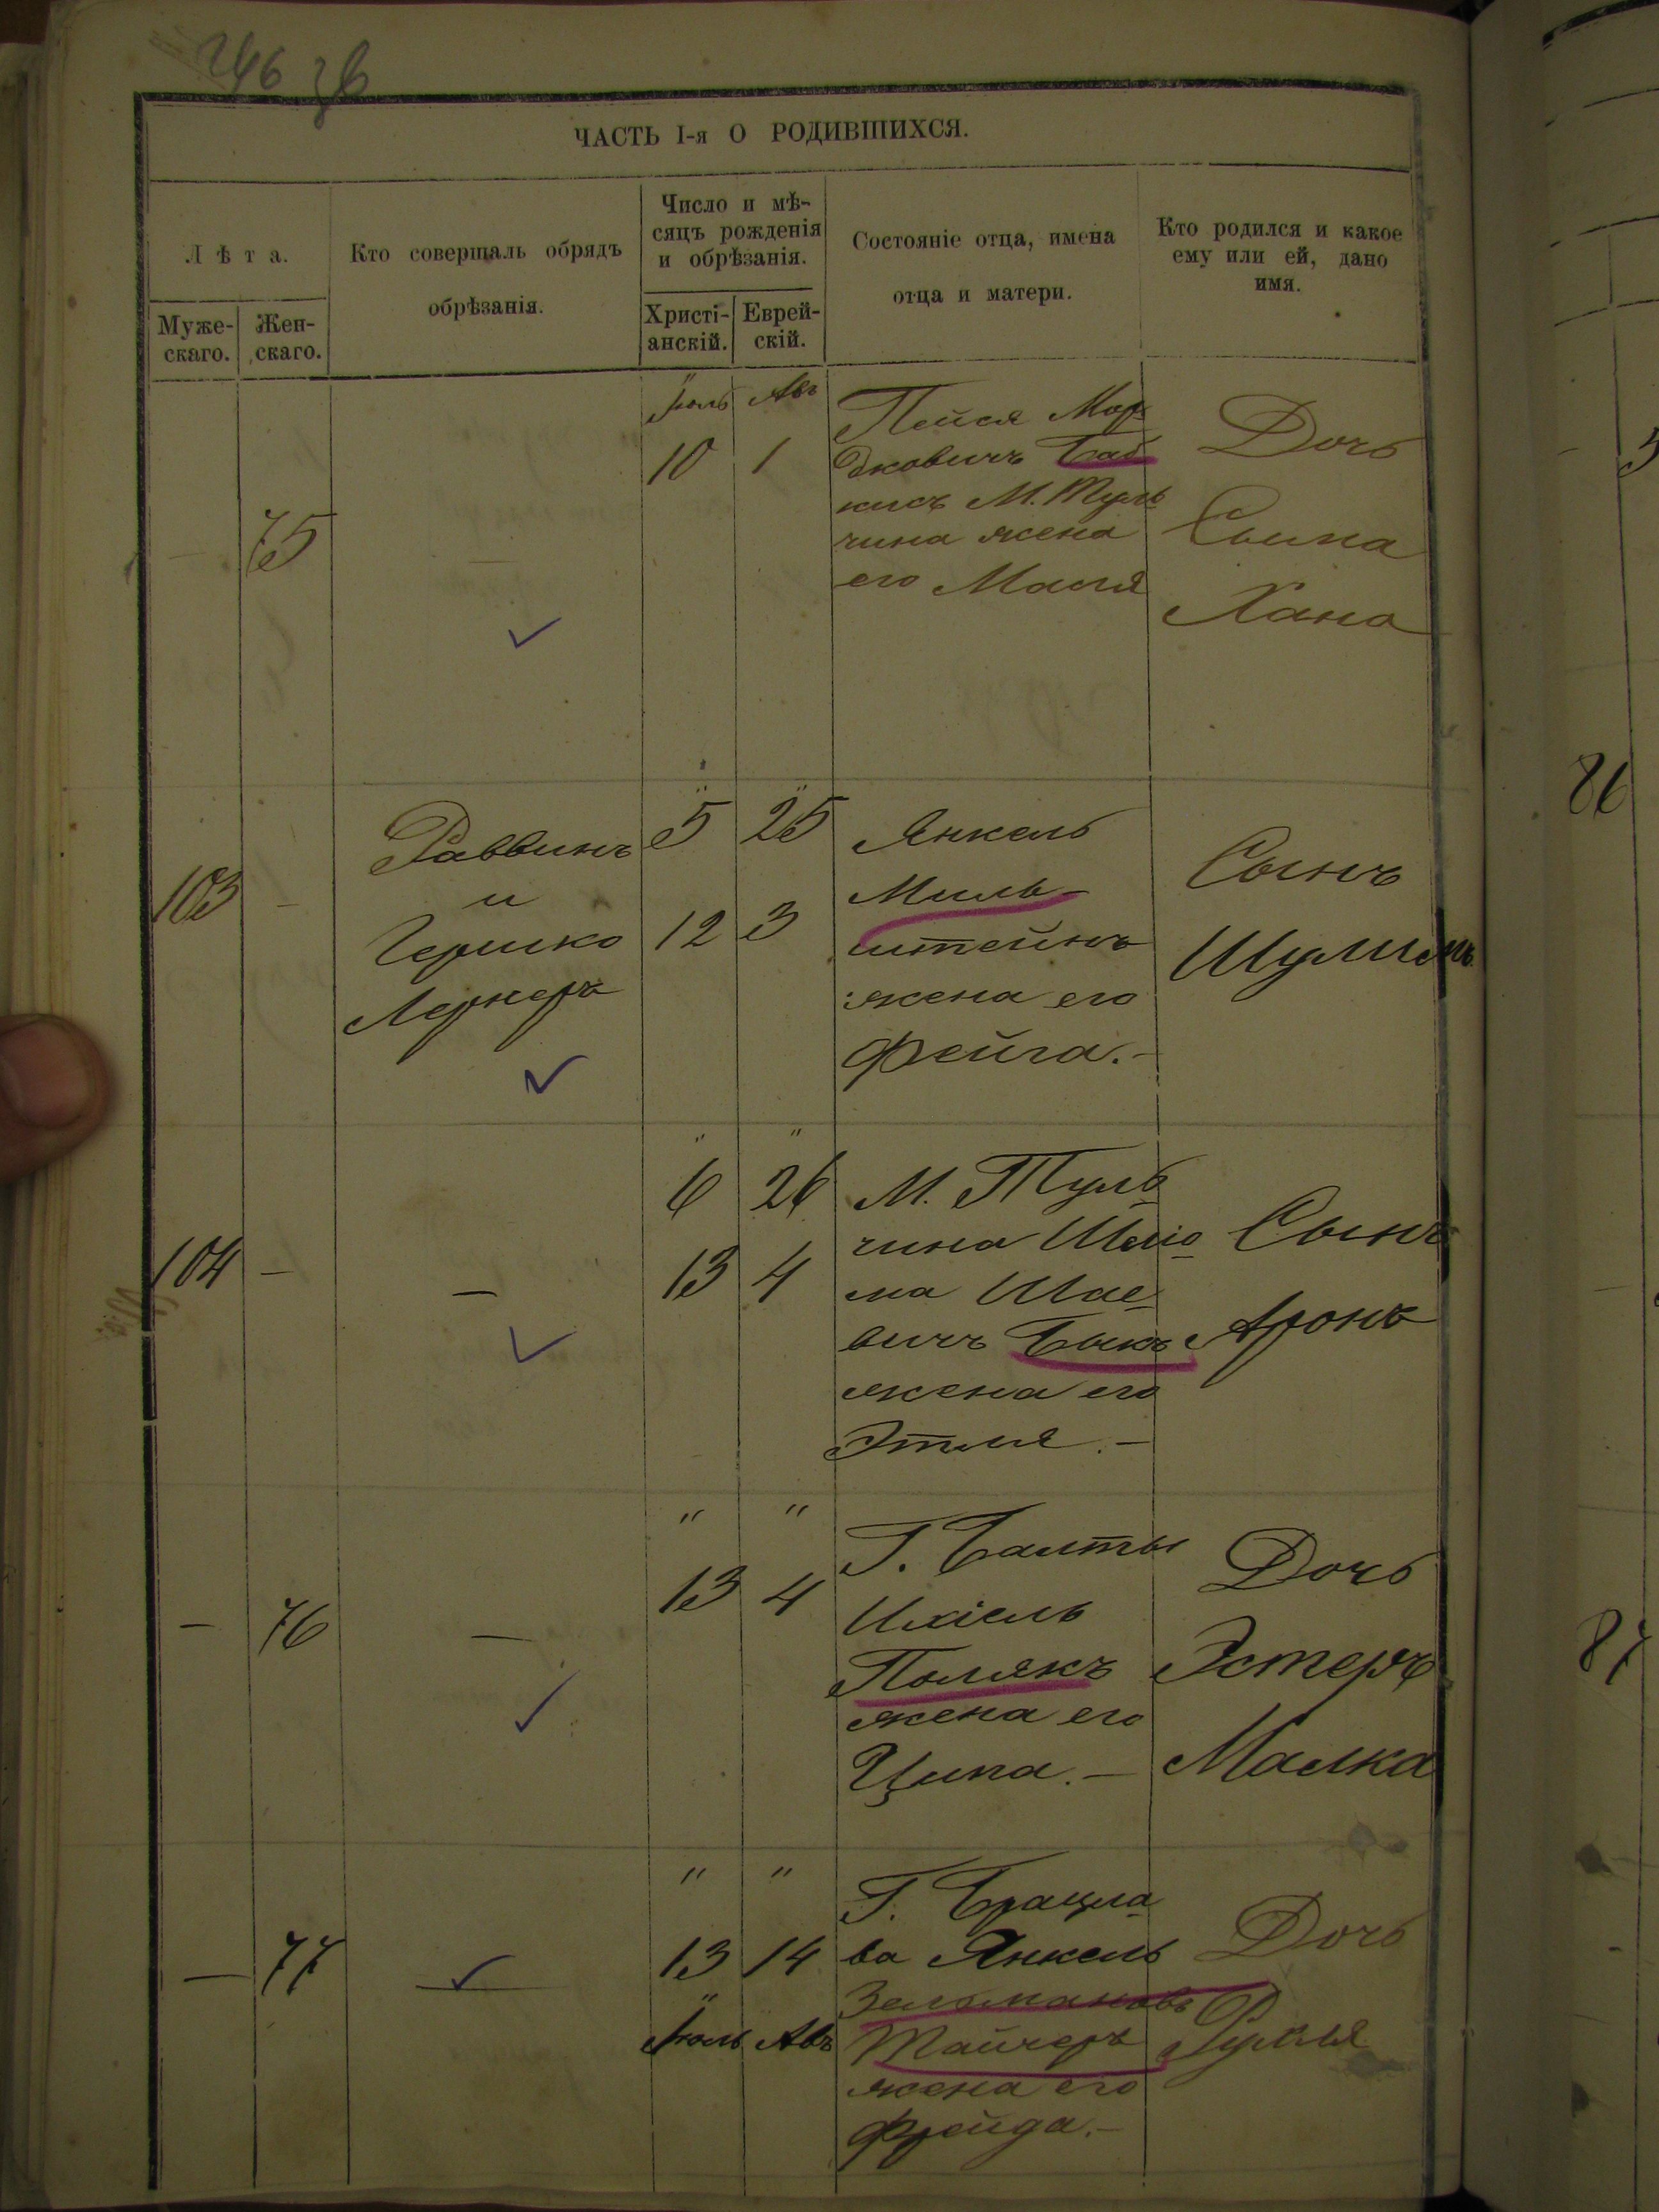 246 зв
ЧАСТЬ I-я О РОДИВШИХСЯ.
Лѣта.
Муже-
скаго.
Жен-
скаго.
Кто совершаль обрядъ
обрѣзанія.
Число и мѣ-
сяцъ рожденія
и обрѣзанія.
Христі-
анскій.
Еврей-
скій.
Состояніе отца, имена
отца и матери.
Кто родился и какое
ему или ей, дано
имя.
—
75
—
Іюль Авъ
10 1
Пейся Мор-
дковичъ Баб-
кисъ М. Туль-
чина жена
его Маля
Дочь
Сыма
Хана
103
—
Раввинъ
и
Гершко
Лернеръ
" "
5 25
12 3
Янкель
Миль-
штейнъ
жена его
Фейга.—
Сынъ
Шулимъ
104
—
—
" "
6 26
13 4
М. Туль-
чина Шлio-
ма Шае-
вичъ Быкъ
жена его
Этля.—
Сынъ
Аронъ
—
76
—
" "
13 4
Г. Балты
Ихіель
Полякъ
жена его
Ципа.—
Дочь
Эстеръ
Малка
—
77
—
" "
13 14
Іюль Авъ
Г. Брацла-
ва Янкель
Зельмановъ
Тайчеръ
жена его
Фрейда.—
Дочь
86
87